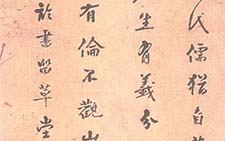 氏儒猶自
生有義分
有倫不觀山
於書留草堂